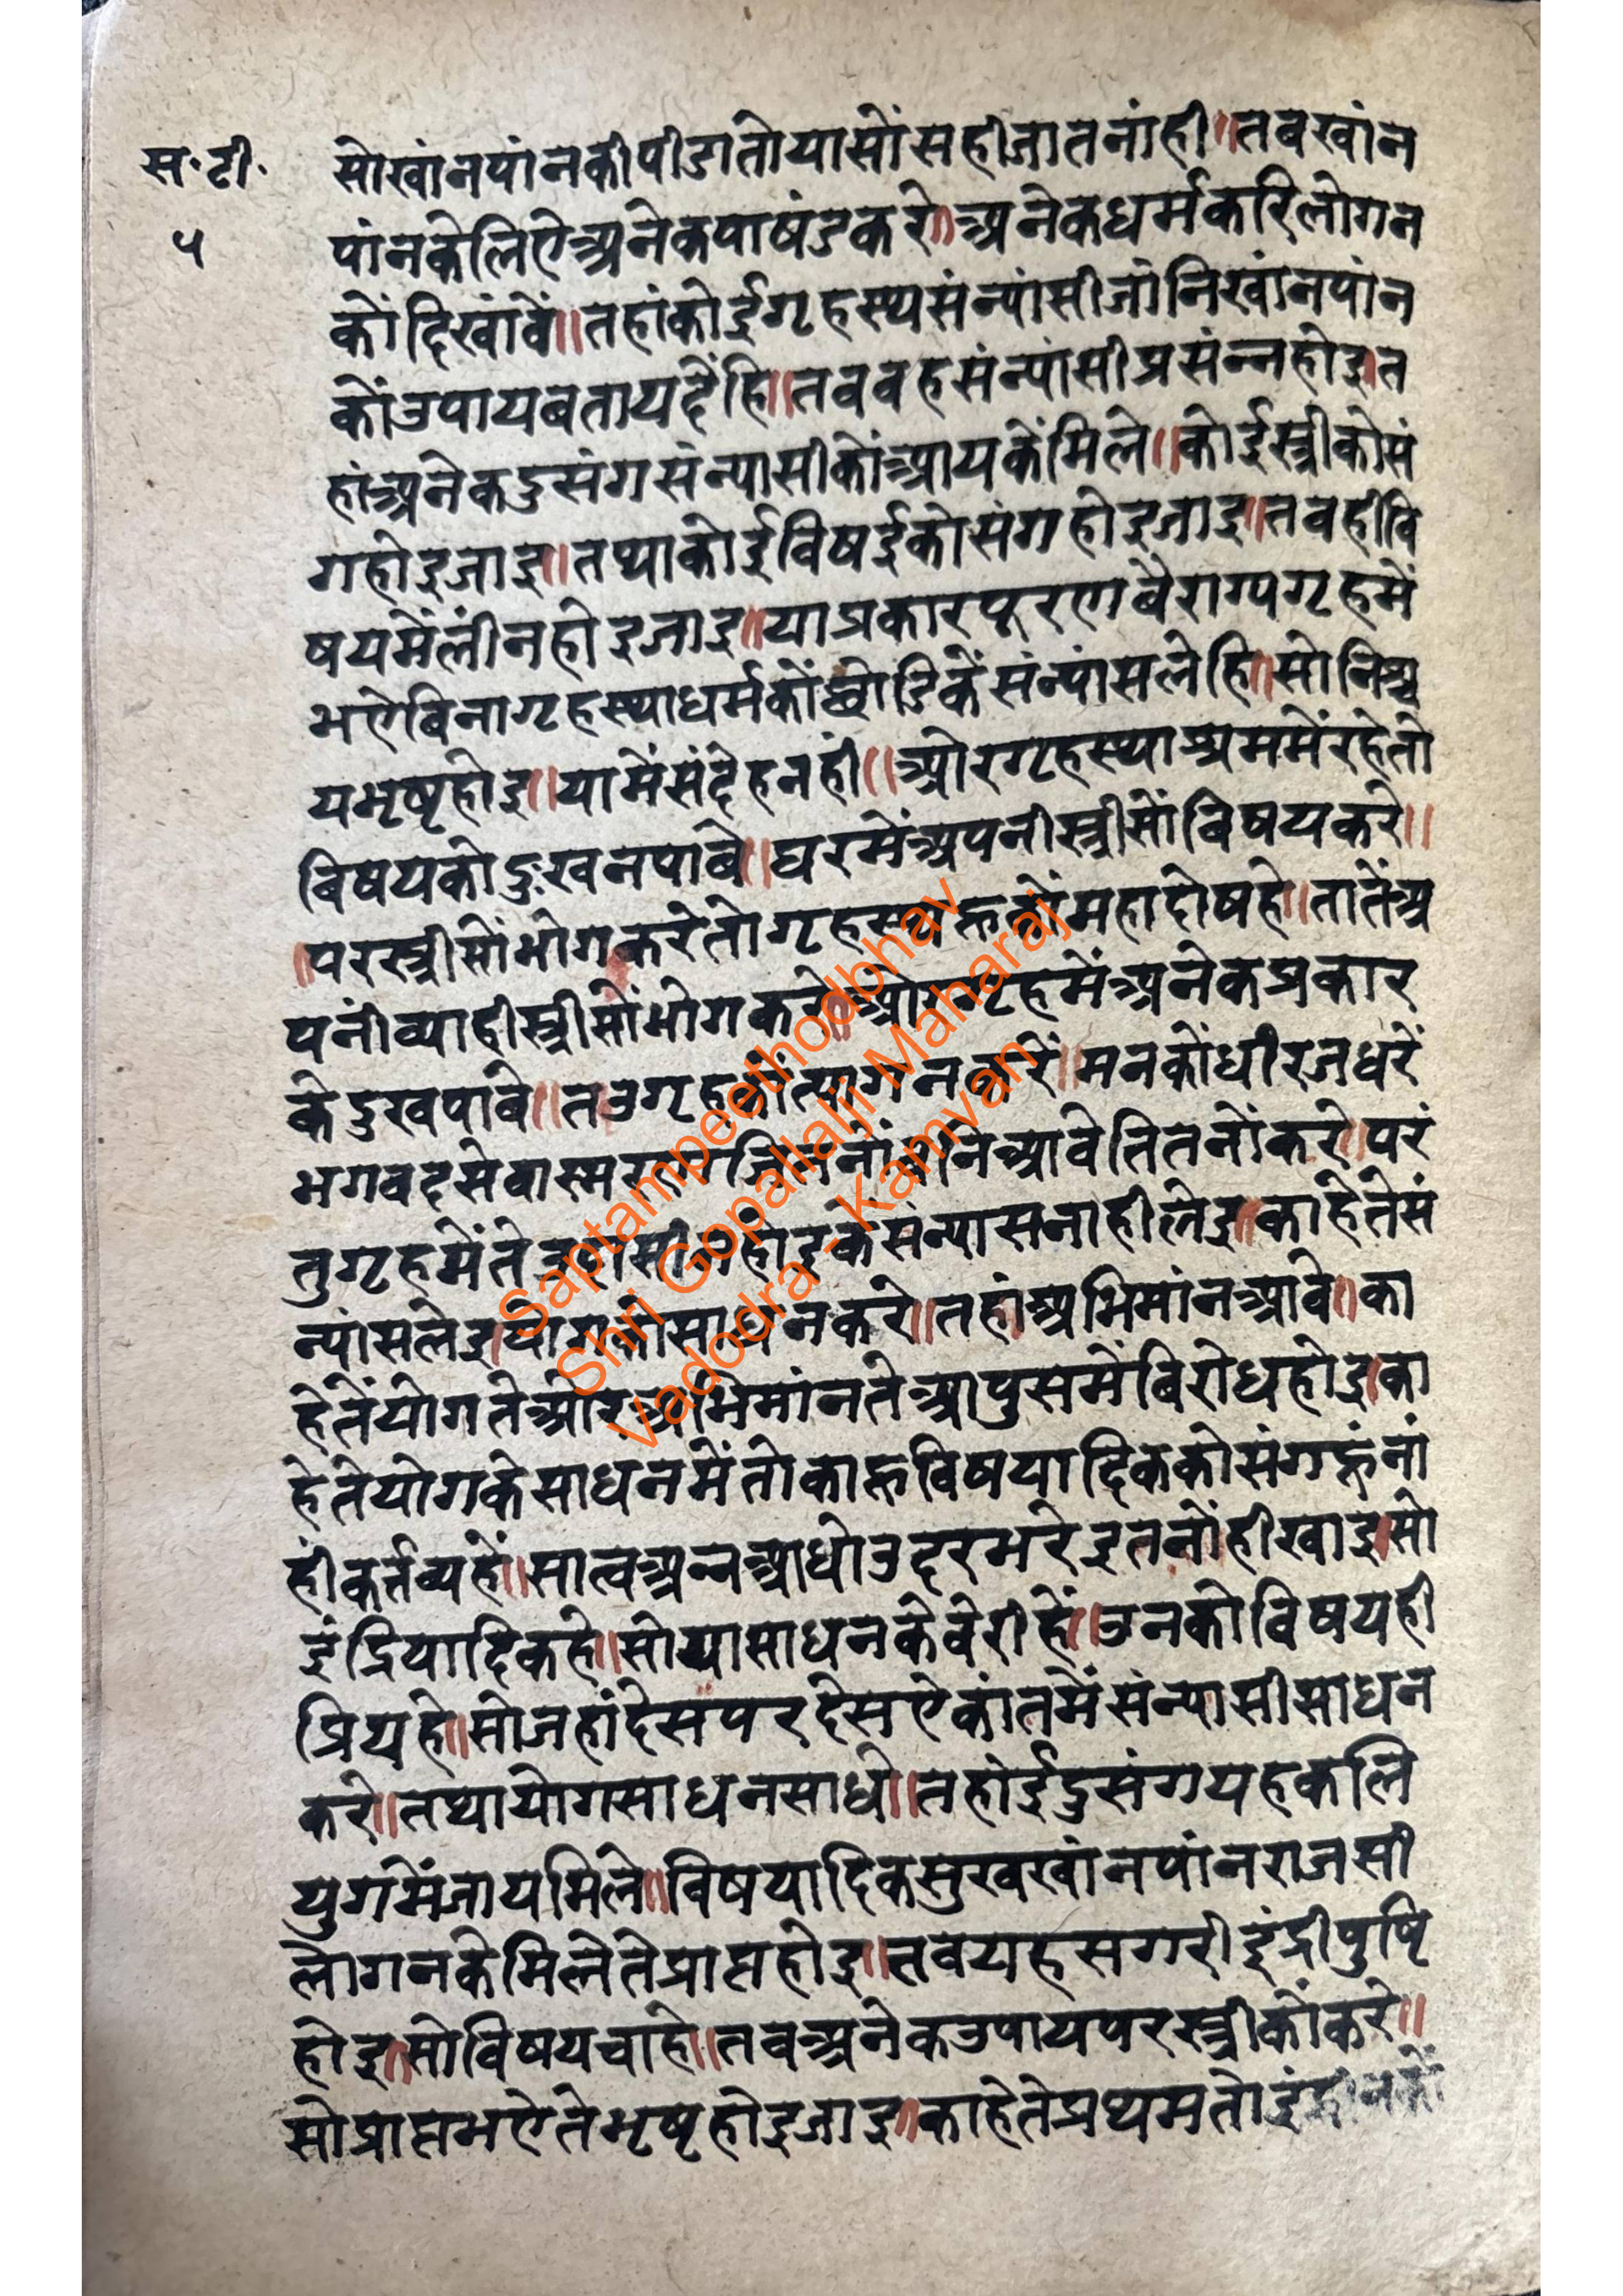 स॰टी॰
५
सोखांनपांनकीपीडातोयासोंसहीजातनांही॥तबखांन
पांनकेलिऐअनेकपाषंडकरे॥अनेकधर्मकरिलोगन
कोंदिखांवें॥तहांकोईगृहस्थसंन्यांसीजांनिखांनपांन
कोंउपायबतायदैंहि॥तबवहसंन्यांसीप्रसंन्नहोइ।त
हांअनेकदुसंगसंन्यासीकोंआयकेंमिले॥कोईस्त्रीकोसं
गहोइजाइ॥तथाकोईविषईकोसंगहोइजाइ॥तबहीवि
षयमेंलींनहोइजाइ॥याप्रकारपूरणवैराग्यगृहमें
भऐबिनागृहस्थाधर्मकोंछोडिकेंसंन्यांसलेहि॥सोनिश्च
यभृष्टहोइ॥यामेंसंदेहनहीं॥ओरगृहस्थाश्रममेंरहेतो
बिषयकोदुखनपाबे॥घरमेंअपनीस्त्रीसोंबिषयकरे॥
परस्त्रीसोंभोगकरेतोगृहस्थहूकोंमहादोषहे॥तातेंअ
पनींव्याहीस्त्रीसोंभोगकरे॥ओरगृहमेंअनेकप्रकार
केदुखपाबे॥तउगृहकोंत्यागनकरें॥मनकोंधीरजधरें
भगवदसेवास्मरणजितनोंबनिआवेतितनोंकरे॥परं
तुगृहमेंतेउदासीनहोइकेसंन्यासनाहीलेइ॥काहेतेसं
न्यांसलेइयोगकोसाधनकरे॥तहांअभिमांनआवे॥का
हेतेंयोगतेओरअभिमांनतेआपुसमेंबिरोधहोइ।का
हेतेयोगकेसाधनमेंतोकाहूविषयादिककोसंगहूंनां
हींकर्तव्यहों॥सात्वअन्नआधोउदरभरेइतनोंहीखाइ।सो
इंद्रियादिकहे॥सोयासाधनकेवेरीहें॥उनकोविषयही
प्रियहे॥सोजहांदेसपरदेसऐकांतमेंसंन्यासीसाधन
करे॥तथायोगसाधनसाधे॥तहांईदुसंगयहकलि
युगमेंजायमिले॥विषयादिकसुखखांनपांनराजसी
लोगनकेमिलेतेप्राप्तहोइ॥तबयहसगरीइंद्रीपुष्टि
होइ॥सोविषयचाहे॥तबअनेकउपायपरस्त्रीकोंकरे॥
सोप्राप्तभऐतेभृष्टहोइजाइ॥काहेतेप्रथमतोइंद्रीनकों
Saptampeethodbhav
Shri Gopallalji Maharaj
Vadodra - Kamvan